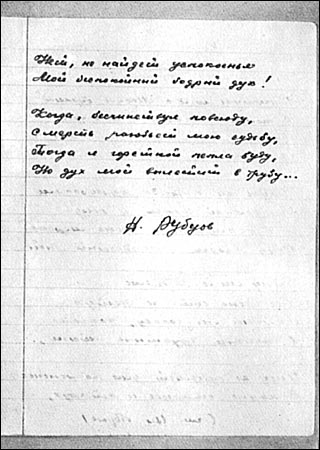 Нет, не найдет успокоенья
Мой беспокойный бодрый дух!
Когда, бесчинствуя повсюду,
Смерть разобьет мою судьбу,
Тогда я горсткой пепла буду,
Но дух мой вылетит в трубу...
Н. Рубцов